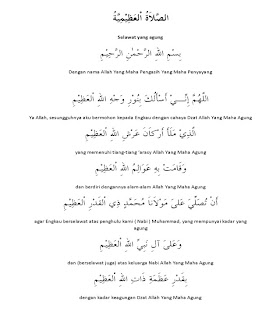 الصَّلَاةُ الْعَظِيْمِيَّةُ
Selawat yang agung
بِسْمِ اللهِ الرَّحْمٰنِ الرَّحِيْمِ
Dengan nama Allah Yang Maha Pengasih Yang Maha Penyayang
اللّٰهُمَّ إِنِّيْ أَسْأَلُكَ بِنُوْرِ وَجْهِ اللهِ الْعَظِيْمِ
Ya Allah, sesungguhnya aku bermohon kepada Engkau dengan cahaya Dzat Allah Yang Maha Agung
الَّذِيْ مَلَأَ أَرْكَانَ عَرْشِ اللهِ الْعَظِيْمِ
yang memenuhi tiang-tiang 'arasy Allah Yang Maha Agung
وَقَامَتْ بِهِ عَوَالِمُ اللهِ الْعَظِيْمِ
dan berdiri dengannya alam-alam Allah Yang Maha Agung
أَنْ تُصَلِّيَ عَلَىٰ مَوْلَانَا مُحَمَّدٍ ذِي الْقَدْرِ الْعَظِيْمِ
agar Engkau berselawat atas penghulu kami ( Nabi ) Muhammad, yang mempunyai kadar yang
agung
وَعَلَىٰ آلِ نَبِيِّ اللهِ الْعَظِيْمِ
dan (berselawat juga) atas keluarga Nabi Allah Yang Maha Agung
بِقَدْرِ عَظَمَةِ ذَاتِ اللهِ الْعَظِيْمِ
dengan kadar keagungan Dzat Allah Yang Maha Agung